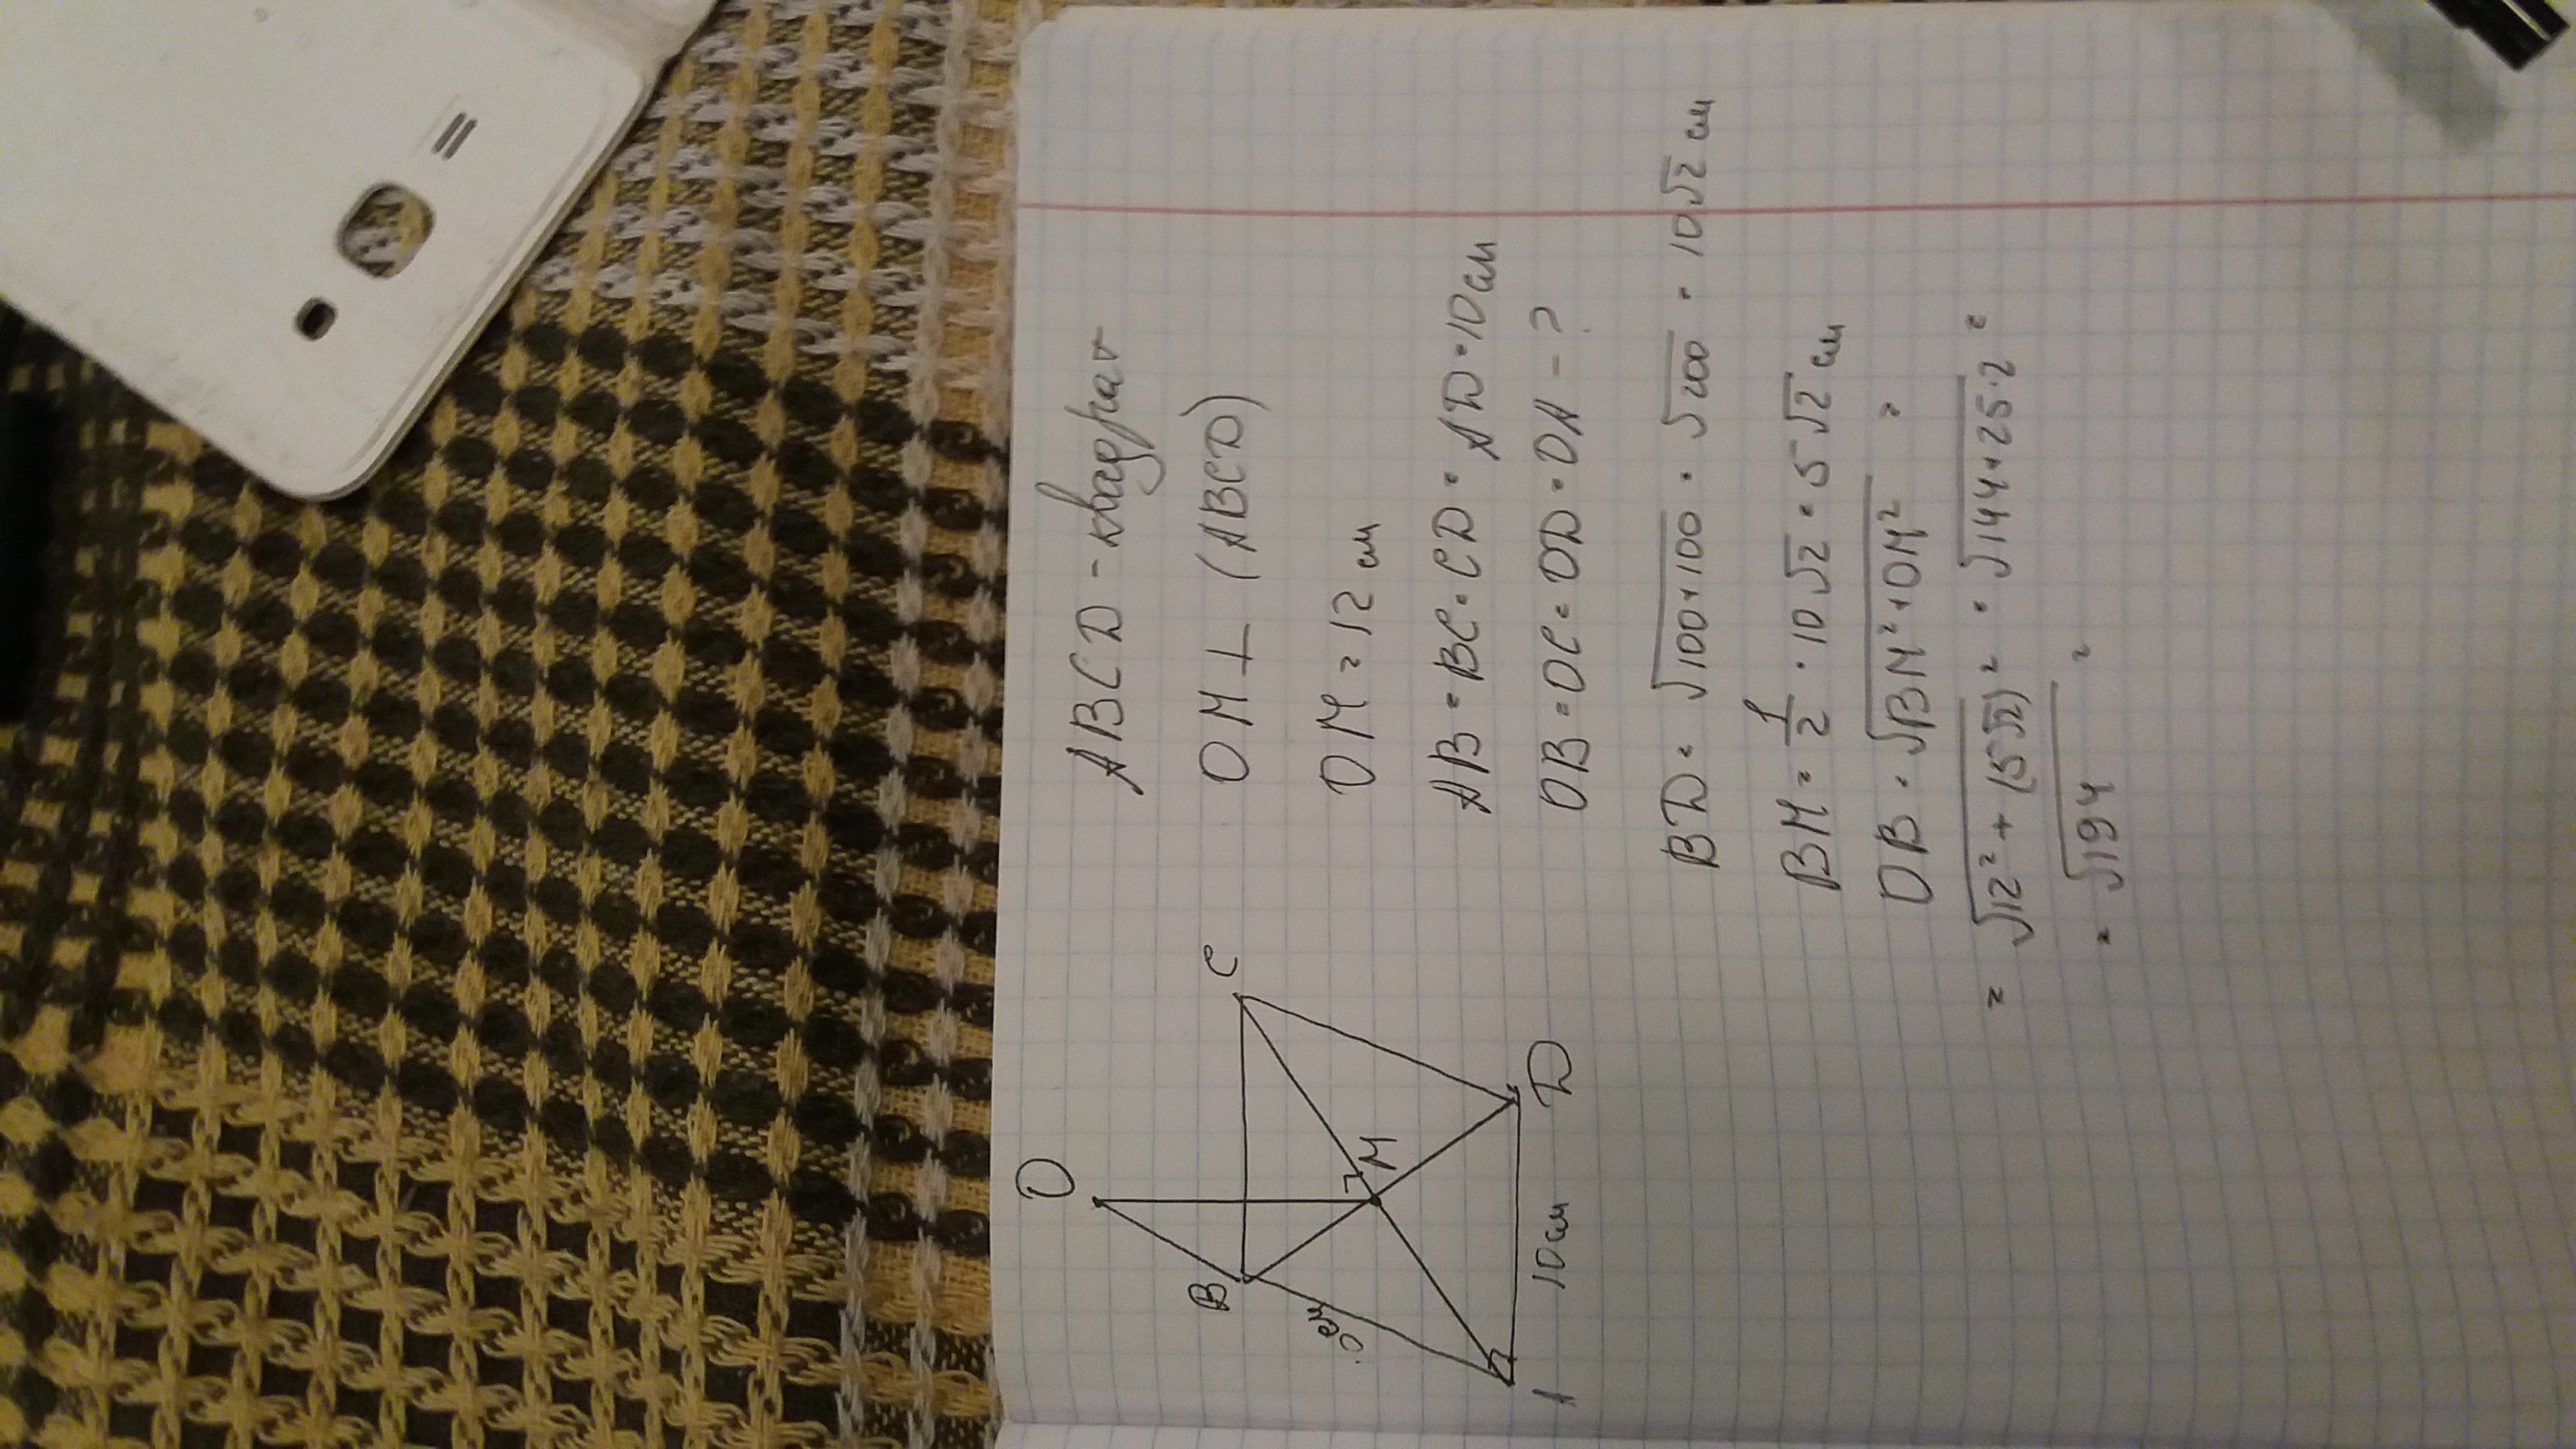 ABCD - квадрат
OM ⊥ (ABCD)
OM = 12 см
AB = BC = CD = AD = 10 см
OB = OC = OD = OA - ?
BD = √100+100 = √200 = 10√2 см
BM = 1/2 · 10√2 = 5√2 см
OB = √BM²+OM² =
= √12² + (5√2)² = √144+25·2 =
= √194 =
O
B
C
M
A
D
10 см